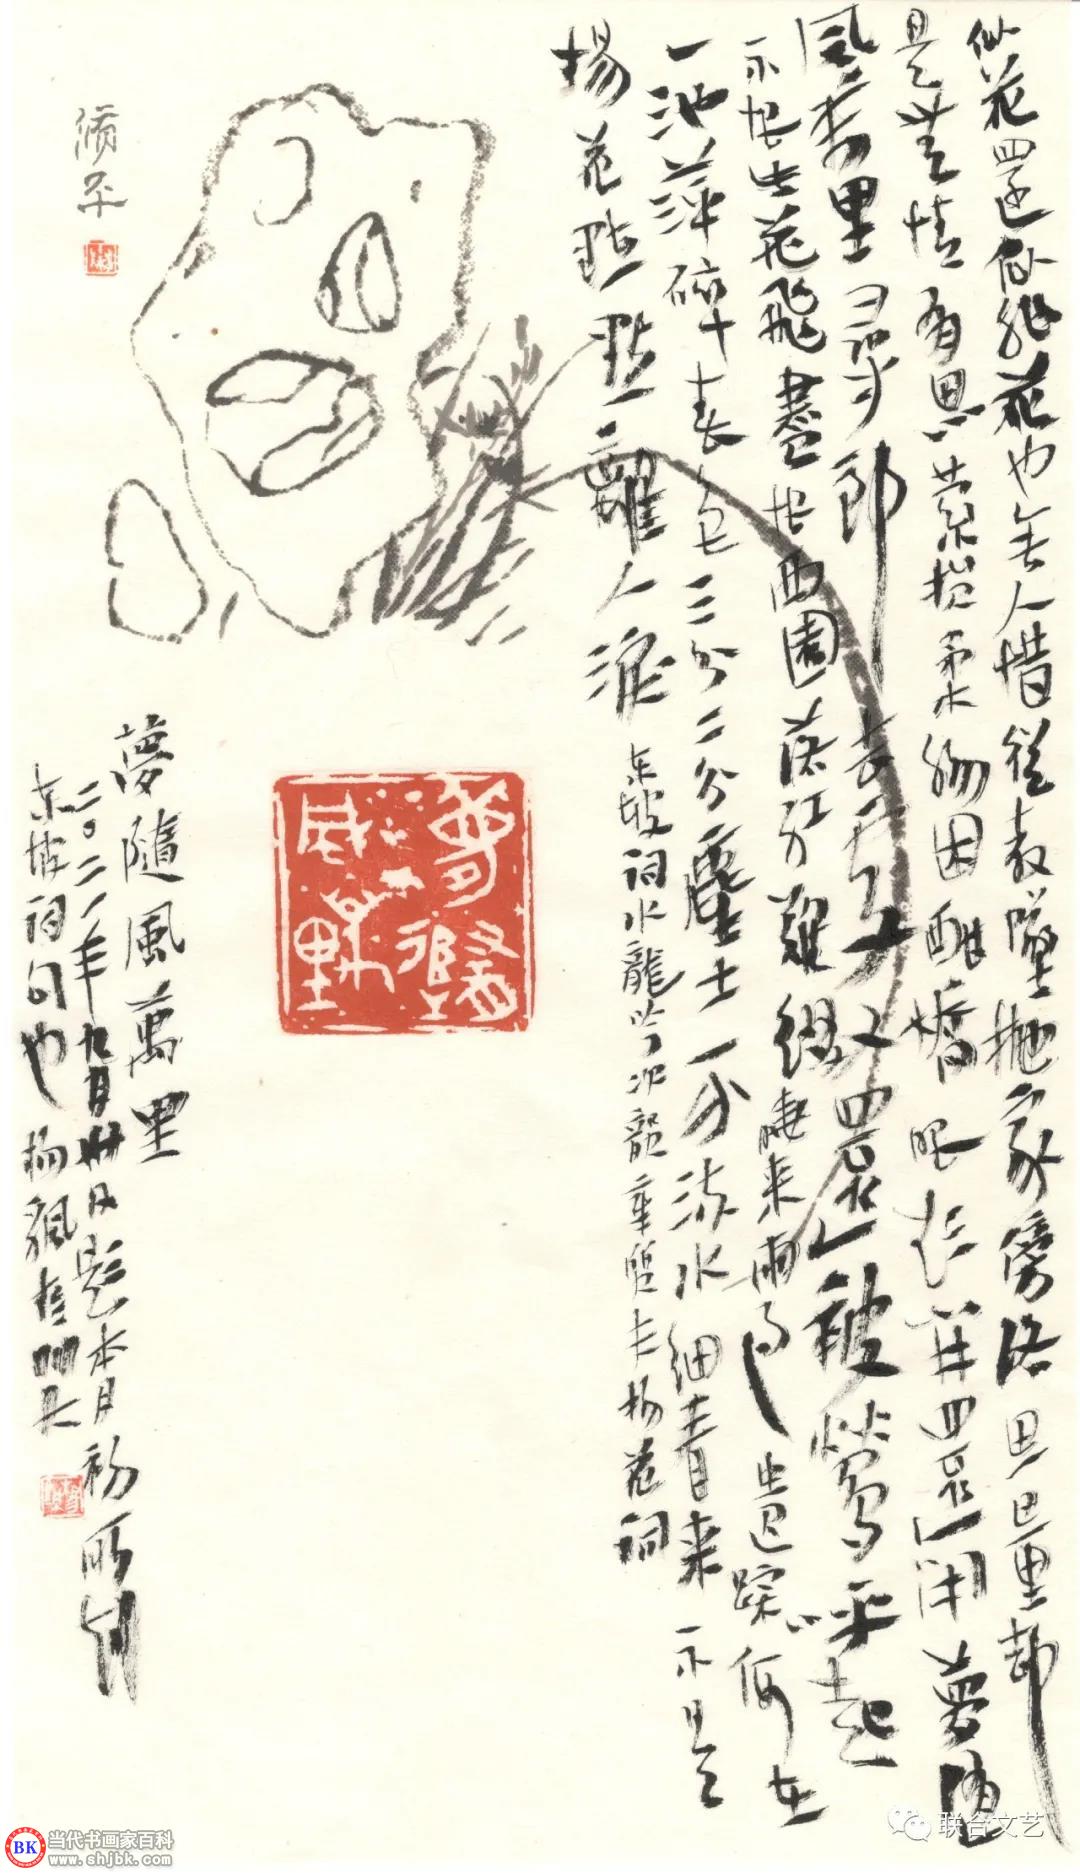 似花還似非花也無人惜從教墜抛家傍路思量却
是無情有思縈損柔腸困酣嬌眼欲開還閉夢隨
風萬里尋郎去處又還被鶯呼起
不恨此花飛盡恨西園落紅難綴曉來雨過遺蹤何在
一池萍碎春色三分二分塵土一分流水細看來不是
楊花點點離人淚 東坡詞水龍吟次韻章質夫楊花詞
夢隨風萬里
夢隨風萬里
二〇二一年九月廿日題本月初所刻
東坡詞句也
BK
当代书画家百科
www.shjbk.com
联合文艺